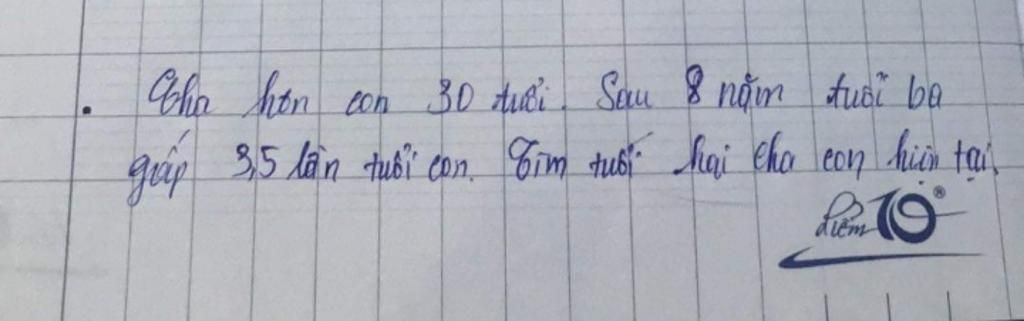 . Cha hơn con 30 tuổi. Sau 8 năm tuổi ba
gấp 3,5 lần tuổi con. Tìm tuổi hai cha con hiện tại
điểm 10®